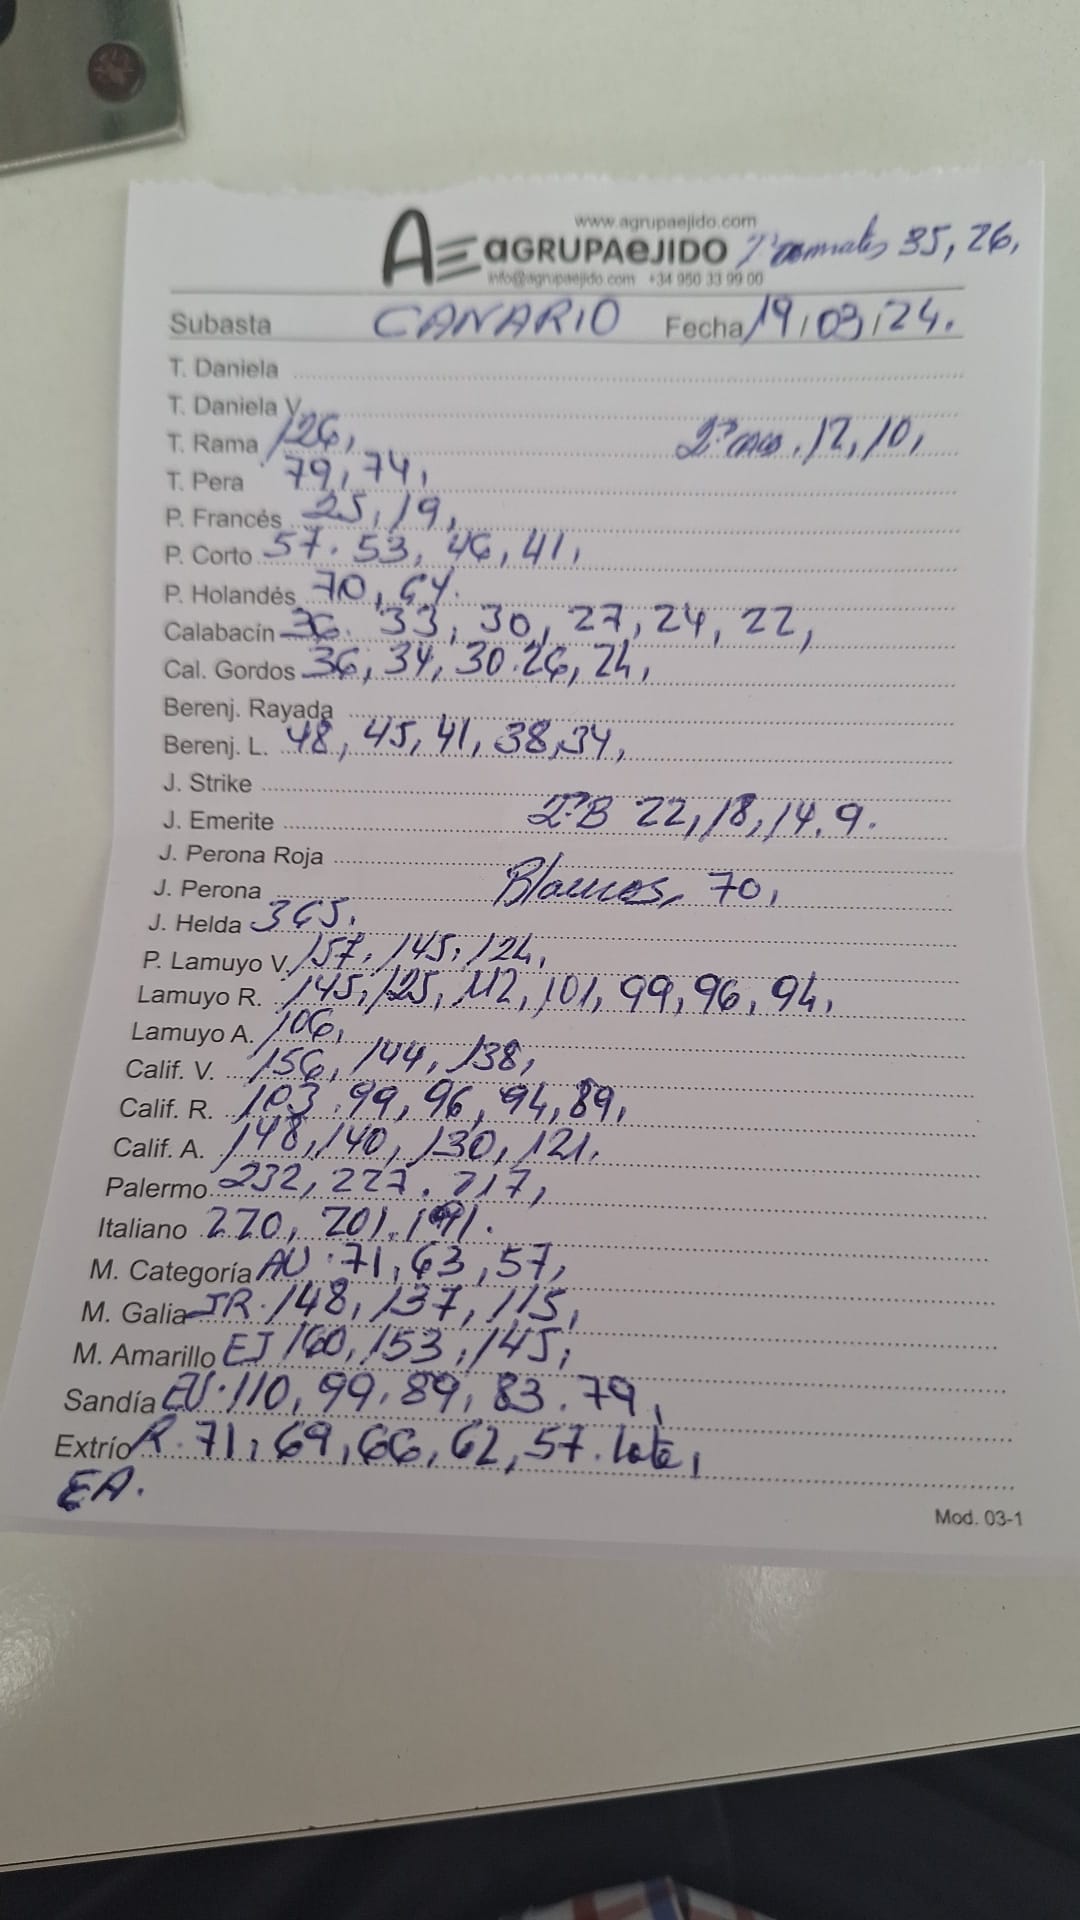 www.agrupaejido.com
AE aGRUPAeJIDO 2ª tomates 35, 26,
info@agrupaejido.com +34 950 33 99 00
Subasta CANARIO Fecha 19/03/24.
T. Daniela
T. Daniela V.
T. Rama 126, 2ª 12, 10,
T. Pera 79, 74,
P. Francés 25, 19,
P. Corto 57. 53, 46, 41,
P. Holandés 70, 64.
Calabacín 36. 33, 30, 27, 24, 22,
Cal. Gordos 36, 34, 30. 26, 24,
Berenj. Rayada
Berenj. L. 48, 45, 41, 38, 34,
J. Strike
J. Emerite 2ªB 22, 18, 14. 9.
J. Perona Roja
J. Perona Blancos, 70,
J. Helda 365.
P. Lamuyo V. 157, 145, 124,
Lamuyo R. 145, 125, 112, 101, 99, 96, 94,
Lamuyo A. 106,
Calif. V. 156, 144, 138,
Calif. R. 103. 99, 96, 94, 89,
Calif. A. 148, 140, 130, 121.
Palermo 232, 227. 217,
Italiano 220, 201. 191.
M. Categoría AU. 71, 63, 57,
M. Galia JR. 148, 137, 115,
M. Amarillo EJ 160, 153, 145,
Sandía EU. 110, 99. 89, 83. 79,
Extrío R. 71, 69, 66, 62, 57. lote,
EA.
Mod. 03-1